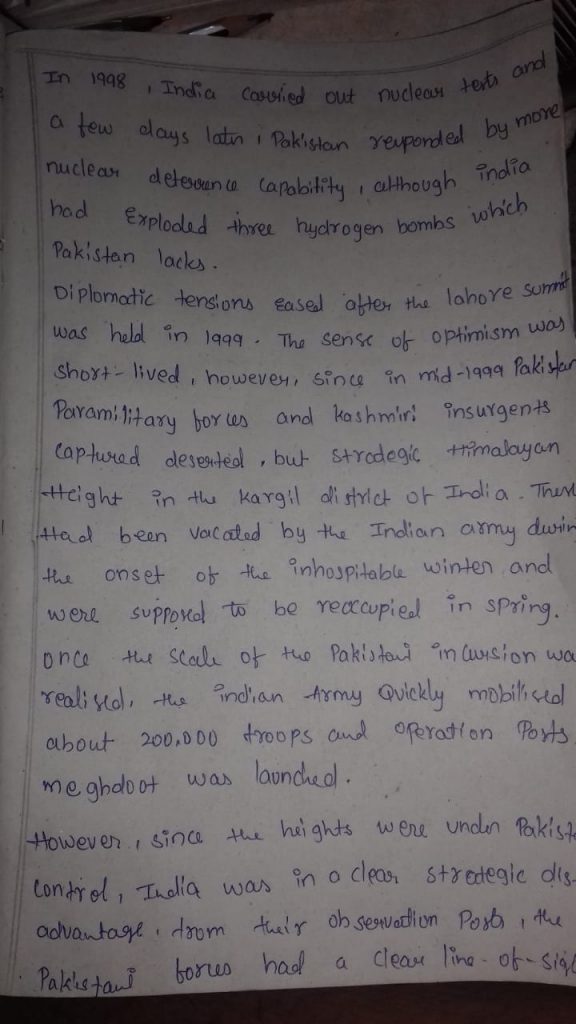 In 1998, India carried out nuclear tests and
a few days latn, Pakistan responded by more
nuclear deterrence capability, although india
had Exploded three hydrogen bombs which
Pakistan lacks.
Diplomatic tensions eased after the lahore summit
was held in 1999. The sense of optimism was
short-lived, however, since in mid-1999 Pakistan
Paramilitary forces and kashmiri insurgents
captured deserted, but strategic Himalayan
Height in the kargil district of India. These
Had been vacated by the Indian army durin
the onset of the inhospitable winter and
were supposed to be reoccupied in spring.
once the scale of the Pakistani incursion wa
realised, the indian Army Quickly mobilised
about 200,000 troops and operation Posts
meghdoot was launched.
However, since the heights were under Pakist
control, India was in a clear strategic dis-
advantage. from their observation Posts, the
Pakistani forces had a clear line-of-sig